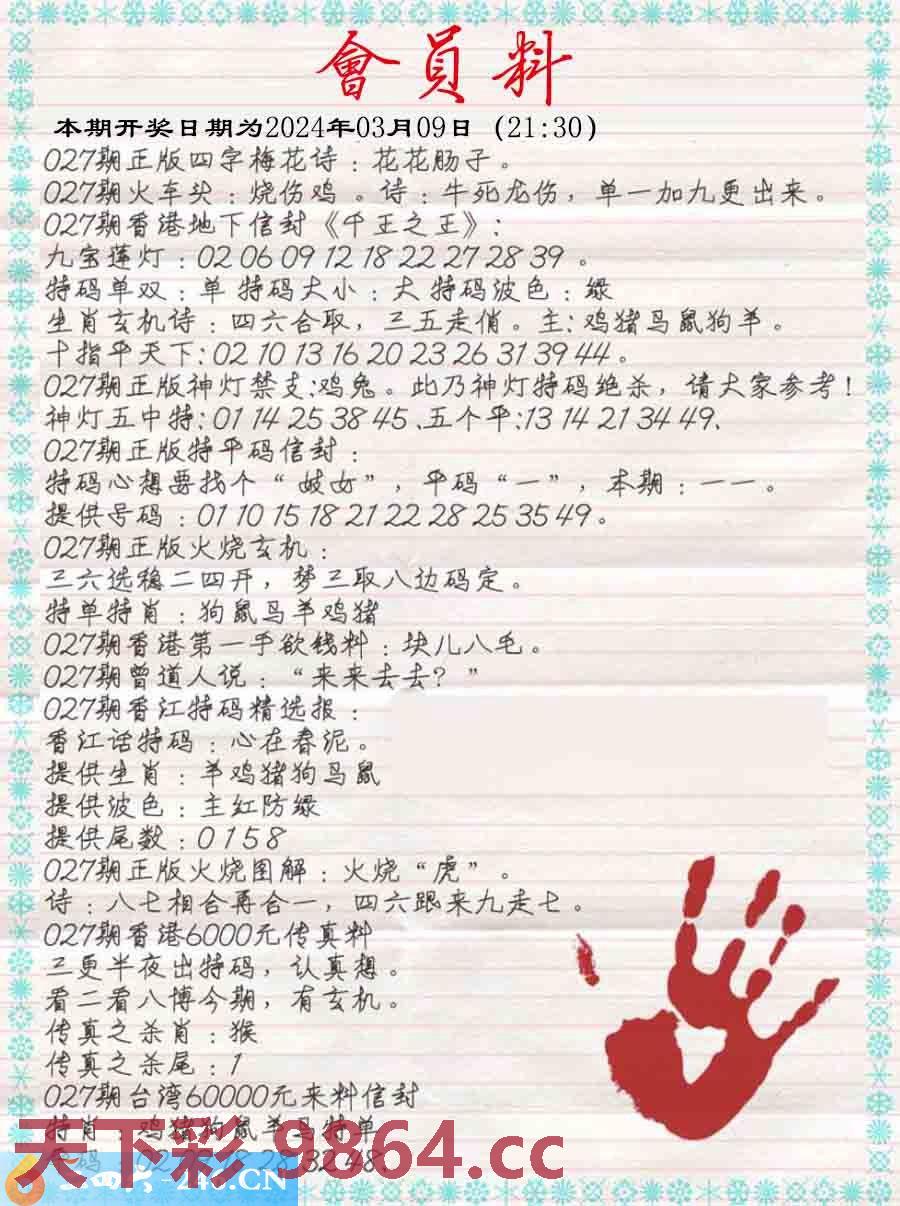 會員料
本期开奖日期为2024年03月09日（21:30）
027期正版四字梅花诗：花花肠子。
027期火车头：烧伤鸡。诗：牛死龙伤，单一加九更出来。
027期香港地下信封《千王之王》：
九宝莲灯：02 06 09 12 18 22 27 28 39 。
特码单双：单 特码大小：大 特码波色：绿
生肖玄机诗：四六合取，三五走俏。主：鸡猪马鼠狗羊。
十指平天下：02 10 13 16 20 23 26 31 39 44 。
027期正版神灯禁支:鸡兔。此乃神灯特码绝杀，请大家参考！
神灯五中特：01 14 25 38 45 、五个平:13 14 21 34 49、
027期正版特平码信封：
特码心想要找个“ 妓女”，平码“一”，本期：一一。
提供号码：01 10 15 18 21 22 28 25 35 49 。
027期正版火烧玄机：
三六选稳二四开，梦三取八边码定。
特单特肖：狗鼠马羊鸡猪
027期香港第一手欲钱料：块儿八毛。
027期曾道人说：“来来去去？”
027期香江特码精选报：
香江话特码：心在春泥。
提供生肖：羊鸡猪狗马鼠
提供波色：主红防绿
提供尾数：0 1 5 8
027期正版火烧图解：火烧“虎”。
诗：八七相合再合一，四六跟来九走七。
027期香港6000元传真料
三更半夜出特码，认真想。
看二看八博今期，有玄机。
传真之杀肖：猴
传真之杀尾：1
027期台湾60000元来料信封
特肖：鸡猪狗鼠羊马特单
天下彩 9864.cc
-246.CN